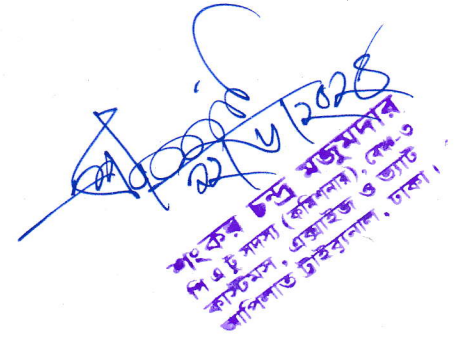 ২২/৮/২০২৪
শংকর চন্দ্র মজুমদার
পি এ টু সদস্য (কমিশনার), বেঞ্চ-৩
কাস্টমস, এক্সাইজ ও ভ্যাট
আপিলাত ট্রাইব্যুনাল, ঢাকা।